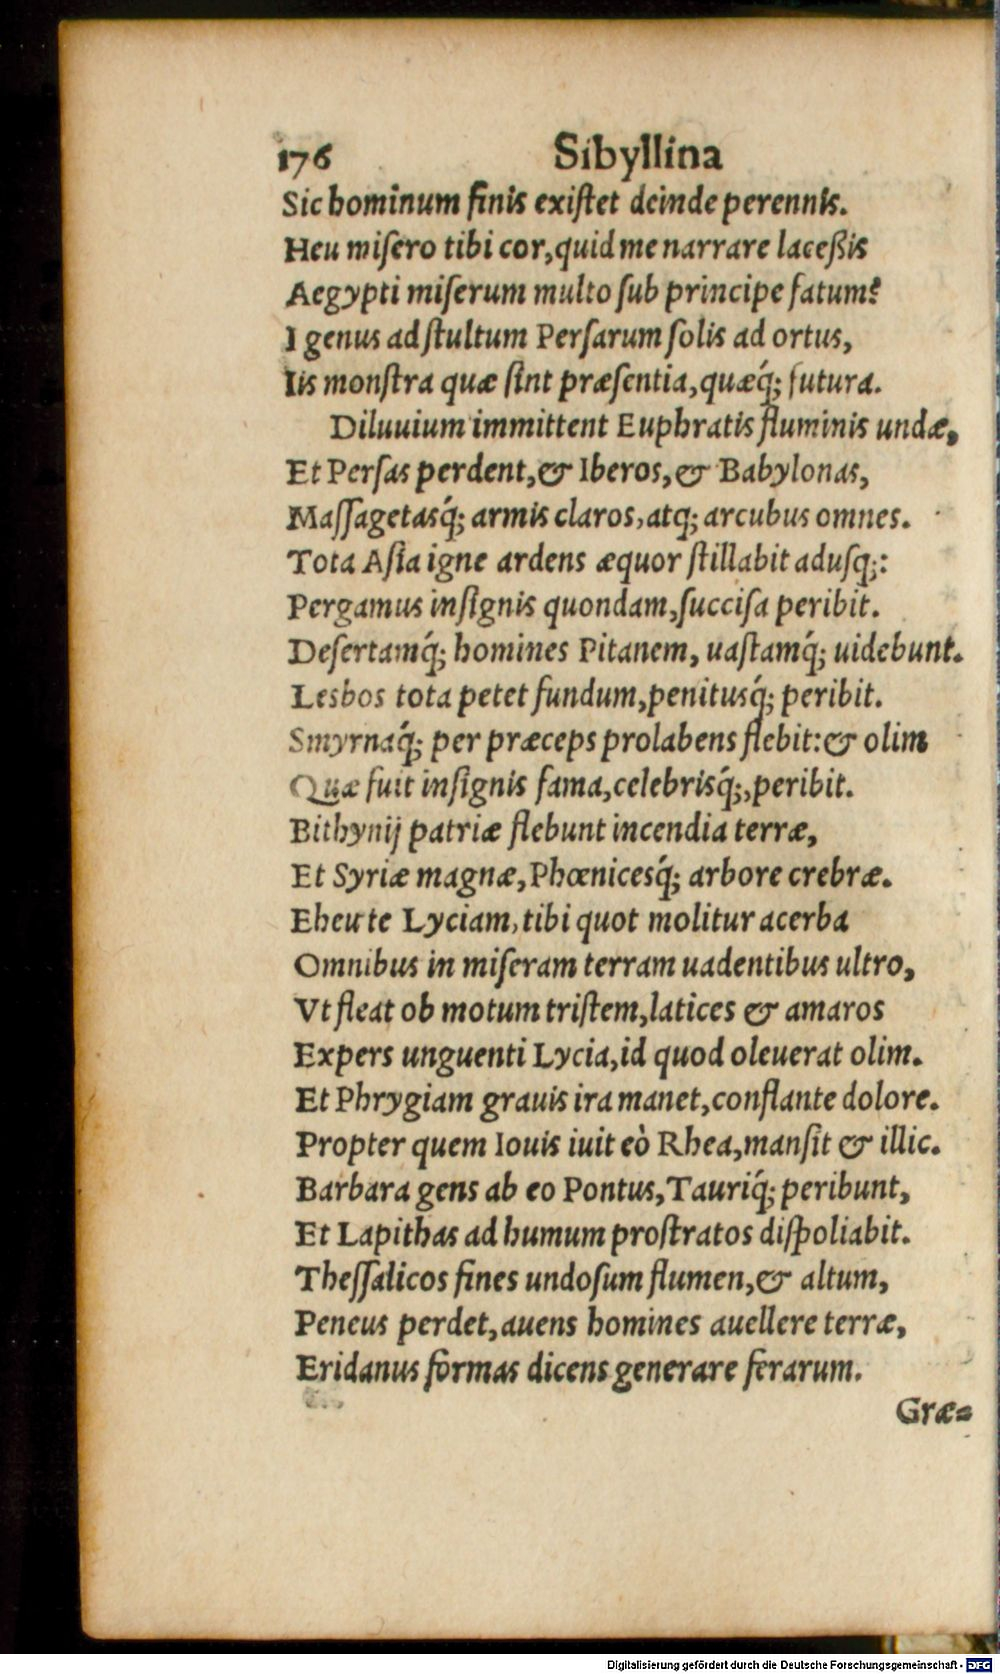 176 Sibyllina
Sic hominum finis exiſtet deinde perennis.
Heu miſero tibi cor,quid me narrare laceßis
Aegypti miſerum multo ſub principe fatum?
I genus ad ſtultum Perſarum ſolis ad ortus,
Iis monſtra quæ ſint præſentia,quæq́; futura.
Diluuium immittent Euphratis fluminis undæ,
Et Perſas perdent,& Iberos,& Babylonas,
Maſſagetasq́; armis claros,atq; arcubus omnes.
Tota Aſia igne ardens æquor ſtillabit aduſq;:
Pergamus inſignis quondam,ſucciſa peribit.
Deſertamq́; homines Pitanem, uaſtamq́; uidebunt.
Lesbos tota petet fundum,penitusq́; peribit.
Smyrnaq́; per præceps prolabens flebit:& olim
Quæ fuit inſignis fama,celebrisq́;,peribit.
Bithynij patriæ flebunt incendia terræ,
Et Syriæ magnæ,Phœnicesq́; arbore crebræ.
Eheu te Lyciam,tibi quot molitur acerba
Omnibus in miſeram terram uadentibus ultro,
Vt fleat ob motum triſtem,latices & amaros
Expers unguenti Lycia,id quod oleuerat olim.
Et Phrygiam grauis ira manet,conflante dolore.
Propter quem Iouis iuit eò Rhea,manſit & illic.
Barbara gens ab eo Pontus,Tauriq́; peribunt,
Et Lapithas ad humum proſtratos diſpoliabit.
Theſſalicos fines undoſum flumen,& altum,
Peneus perdet,auens homines auellere terræ,
Eridanus formas dicens generare ferarum.
Græ=
Digitalisierung gefördert durch die Deutsche Forschungsgemeinschaft - DFG